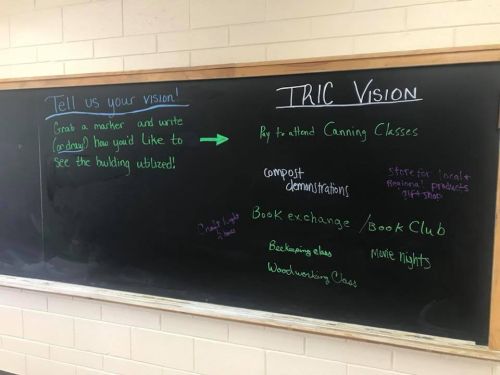 Tell us your vision!
Grab a marker and write
(or draw!) how you'd like to
see the building utilized!
TRIC VISION
Pay to attend Canning Classes
compost
demonstrations
Store for local &
Regional products
Gift shop
Book exchange / Book Club
Beekeeping class
Movie nights
Woodworking Class